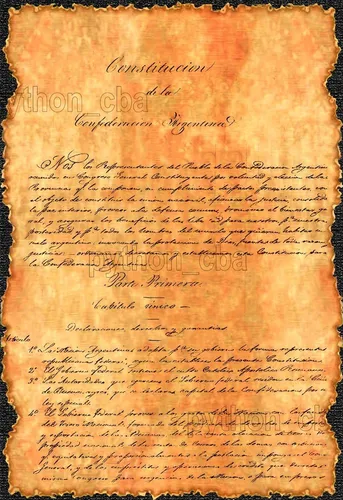 python_cba
Constitucion
de la
Confederacion Argentina
Nos los Representantes del Pueblo de la Confederacion Argentina
reunidos en Congreso General Constituyente por voluntad y eleccion de las
Provincias que la componen, en cumplimiento de pactos preexistentes, con
el objeto de constituir la union nacional, afianzar la justicia, consolidar
la paz interior, proveer a la defensa comun, promover el bienestar
y asegurar los beneficios de la libertad para nosotros, para nuestra
posteridad y para todos los hombres del mundo que quieran habitar
suelo argentino; invocando la proteccion de Dios, fuente de toda razon
justicia: ordenamos, decretamos y establecemos esta Constitucion para
la Confederacion Argentina
python_cba
Parte Primera
Capitulo único
Declaraciones, derechos y garantias
Articulo
1º La Nacion Argentina adopta para su gobierno la forma representativa
republicana federal, segun la establece la presente Constitucion
2º El Gobierno Federal sostiene el culto Católico Apostólico Romano
3º Las Autoridades que ejercen el Gobierno federal residen en la Ciudad
de Buenos Ayres, que se declara capital de la Confederacion por
ley especial
python_cba
4º El Gobierno Federal provee a los gastos de la Nacion con los fondos
del Tesoro Nacional, formado del producto de derechos de
y esportacion de las
propiedad nacional, de la renta de Correos, de las demas contribuciones
equitativa y proporcionalmente a la poblacion imponga el Congreso
General, y de los emprestitos y operaciones de credito que decrete el
mismo Congreso para urgencias de la Nacion o para empresas